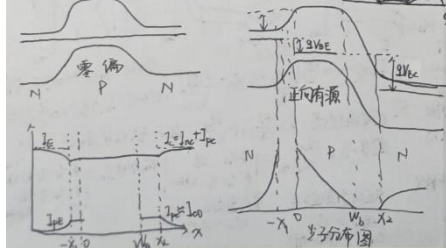 零偏
N P N
I_E
I_C=I_nC+I_pC
I_pE
I_pC≈I_CO
-x₁ 0 W_b x₂ x
qV_BE
qV_BC
正向有源
N P N
-x₁ 0 W_b x₂
少子分布图